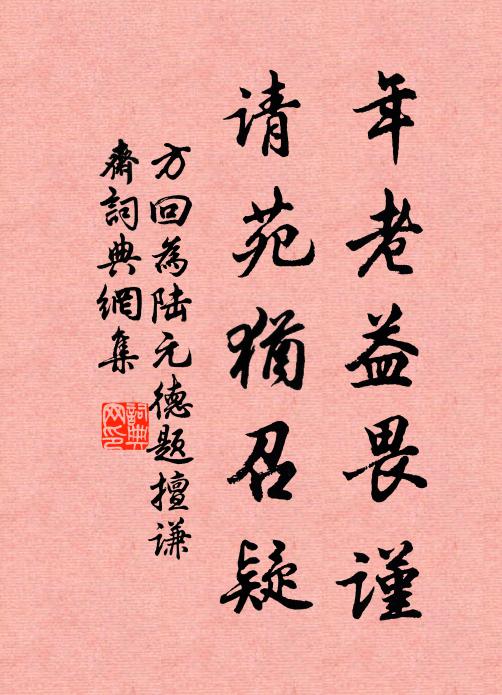 年老益畏谨
请苑犹召疑
方回为陆元德题擅谦
斋词典网集
词典网印